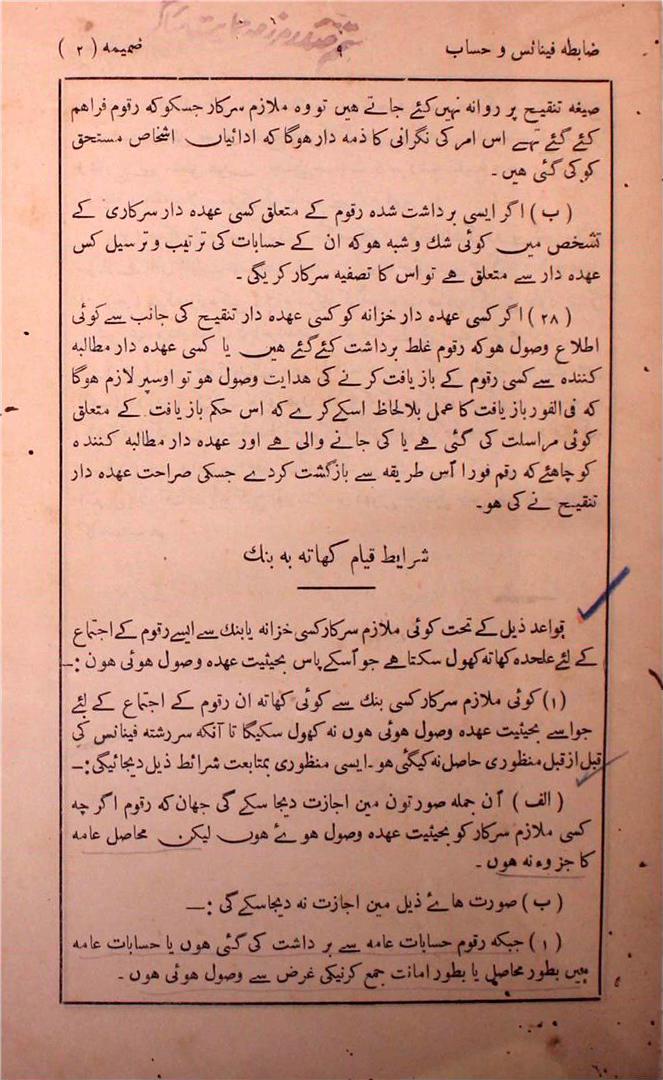 ضابطه فینانس و حساب ۹ ضمیمه (۲)
صیغه تنقیح پر روانه نہیں کئے جاتے هیں تو وه ملازم سرکار جسکو که رقوم فراهم
کئے گئے تہے اس امر کی نگرانی کا ذمه دار هوگا که ادائیاں اشخاص مستحق
کو کی گئی هیں ۔
(ب) اگر ایسی برداشت شده رقوم کے متعلق کسی عهده دار سرکاری کے
تشخص میں کوئی شك و شبه هو که ان کے حسابات کی ترتیب و ترسیل کس
عهده دار سے متعلق ہے تو اس کا تصفیه سرکار کریگی ۔
(۲۸) اگر کسی عهده دار خزانه کو کسی عهده دار تنقیح کی جانب سے کوئی
اطلاع وصول هو که رقوم غلط برداشت کئے گئے هیں یا کسی عهده دار مطالبه
کننده سے کسی رقوم کے باز یافت کرنے کی هدایت وصول هو تو اوسپر لازم هوگا
که فی الفور باز یافت کا عمل بلالحاظ اسکے کرے که اس حکم باز یافت کے متعلق
کوئی مراسلت کی گئی ہے یا کی جانے والی ہے اور عهده دار مطالبه کننده
کو چاهئے که رقم فورا اس طریقه سے بازگشت کردے جسکی صراحت عهده دار
تنقیح نے کی هو۔
شرایط قیام کھاته به بنك
قواعد ذیل کے تحت کوئی ملازم سرکار کسی خزانه یا بنك سے ایسے رقوم کے اجتماع
کے لئے علحده کھاته کھول سکتا ہے جو اسکے پاس بحیثیت عهده وصول هوئی هون :۔
(۱) کوئی ملازم سرکار کسی بنك سے کوئی کھاته ان رقوم کے اجتماع کے لئے
جو اسے بحیثیت عهده وصول هوئی هوں نه کھول سکیگا تا آنکه سر رشته فینانس کی
قبل از قبل منظوری حاصل نه کیگئی هو ۔ ایسی منظوری بمتابعت شرائط ذیل دیجائیگی :۔
(الف) ان جمله صورتون مین اجازت دیجا سکے گی جهان که رقوم اگر چه
کسی ملازم سرکار کو بحیثیت عهده وصول هوئے هوں لیکن محاصل عامه
کا جزوء نه هوں ۔
(ب) صورت هائے ذیل مین اجازت نه دیجاسکے گی :۔
(۱) جبکه رقوم حسابات عامه سے برداشت کی گئی هوں یا حسابات عامه
میں بطور محاصل یا بطور امانت جمع کرنیکی غرض سے وصول هوئی هوں ۔